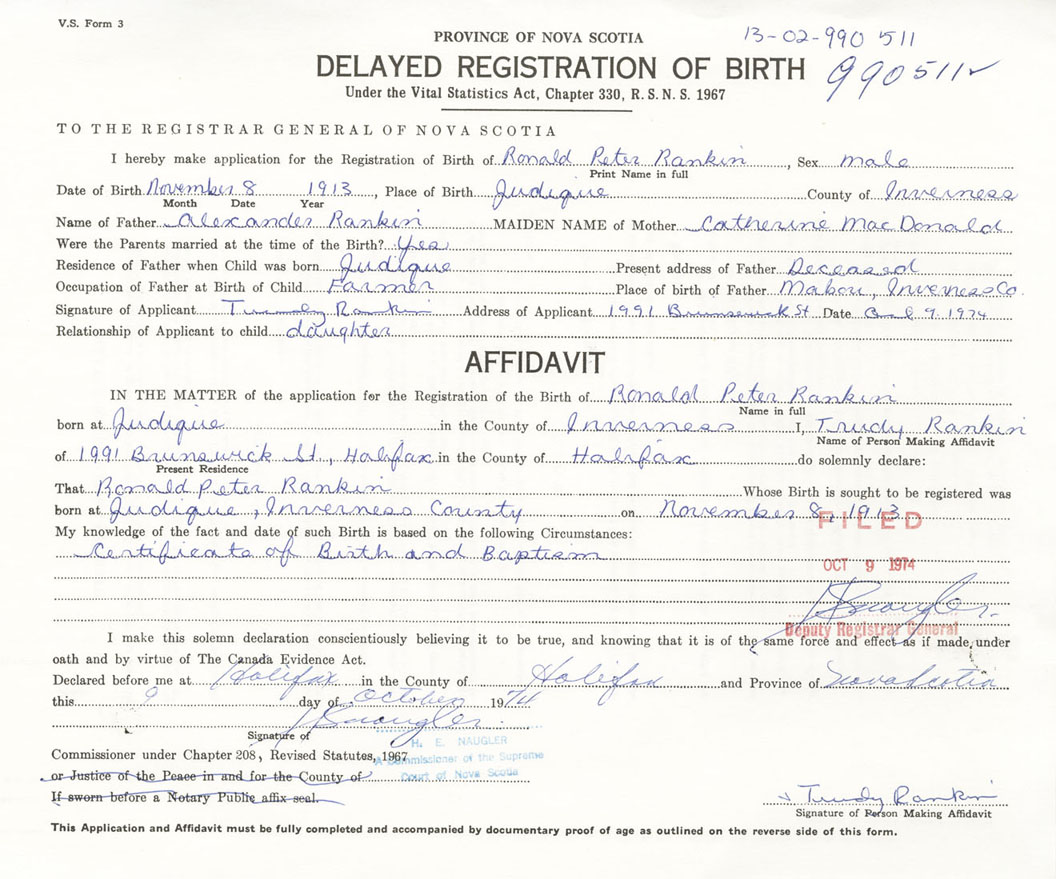 V.S. Form 3
PROVINCE OF NOVA SCOTIA 13-02-990 511
DELAYED REGISTRATION OF BIRTH 990511
Under the Vital Statistics Act, Chapter 330, R.S.N.S. 1967
TO THE REGISTRAR GENERAL OF NOVA SCOTIA
I hereby make application for the Registration of Birth of Ronald Peter Rankin, Sex male
Print Name in full
Date of Birth November 8 1913, Place of Birth Judique County of Inverness
Month Date Year
Name of Father Alexander Rankin MAIDEN NAME of Mother Catherine MacDonald
Were the Parents married at the time of the Birth? Yes
Residence of Father when Child was born Judique Present address of Father Deceased
Occupation of Father at Birth of Child Farmer Place of birth of Father Mabou, Inverness Co.
Signature of Applicant Trudy Rankin Address of Applicant 1991 Brunswick St. Date 9. 1974
Relationship of Applicant to child daughter
AFFIDAVIT
IN THE MATTER of the application for the Registration of the Birth of Ronald Peter Rankin
Name in full
born at Judique in the County of Inverness I, Trudy Rankin
Name of Person Making Affidavit
of 1991 Brunswick St., Halifax in the County of Halifax do solemnly declare:
Present Residence
That Ronald Peter Rankin Whose Birth is sought to be registered was
born at Judique, Inverness County on November 8, 1913
FILED
My knowledge of the fact and date of such Birth is based on the following Circumstances:
Certificate of Birth and Baptism
OCT 9 1974
Deputy Registrar General
I make this solemn declaration conscientiously believing it to be true, and knowing that it is of the same force and effect as if made under
oath and by virtue of The Canada Evidence Act.
Declared before me at Halifax in the County of Halifax and Province of Nova Scotia
this 9 day of October 1974
Signature of
H. E. NAUGLER
Commissioner under Chapter 208, Revised Statutes, 1967
A Commissioner of the Supreme
or Justice of the Peace in and for the County of
Court of Nova Scotia
If sworn before a Notary Public affix seal.
Trudy Rankin
Signature of Person Making Affidavit
This Application and Affidavit must be fully completed and accompanied by documentary proof of age as outlined on the reverse side of this form.